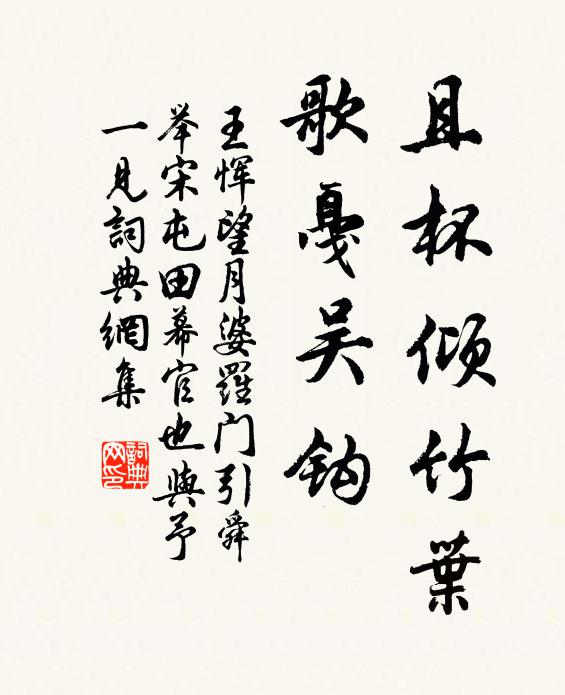 且杯倾竹葉
歌戛吴鈎
王恽望月婆羅门引舜
举宋屯田幕官也與予
一見詞典網集
詞典网印